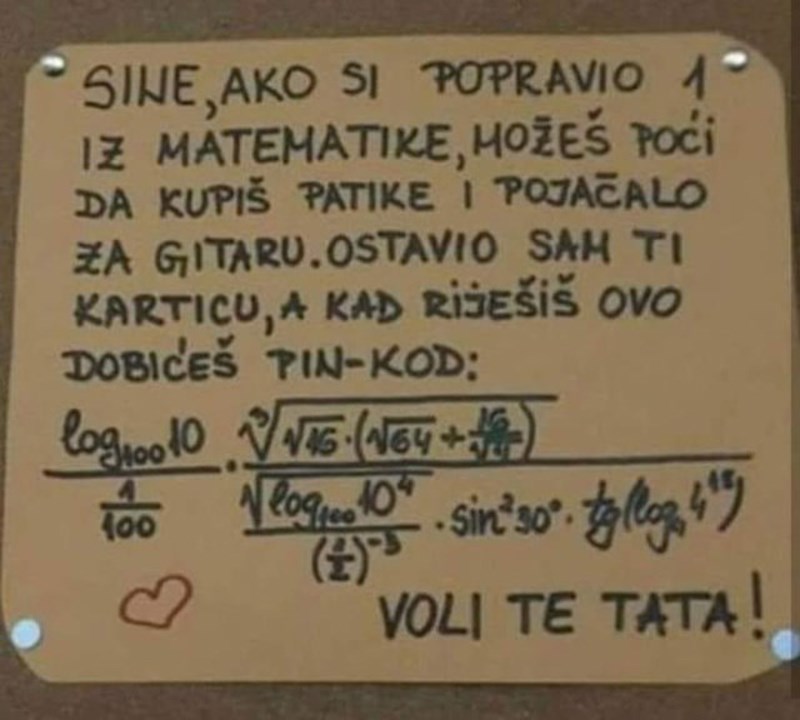 SINE, AKO SI POPRAVIO 1
IZ MATEMATIKE, MOŽEŠ POĆI
DA KUPIŠ PATIKE I POJAČALO
ZA GITARU. OSTAVIO SAM TI
KARTICU, A KAD RIJEŠIŠ OVO
DOBIĆEŠ PIN-KOD:
log₁₀₀10 / (1/100) · ∛(√16·(√64+
√(log₁₀₀10⁴) / ( )⁻³ · sin²30° · tg(log₄4
VOLI TE TATA!